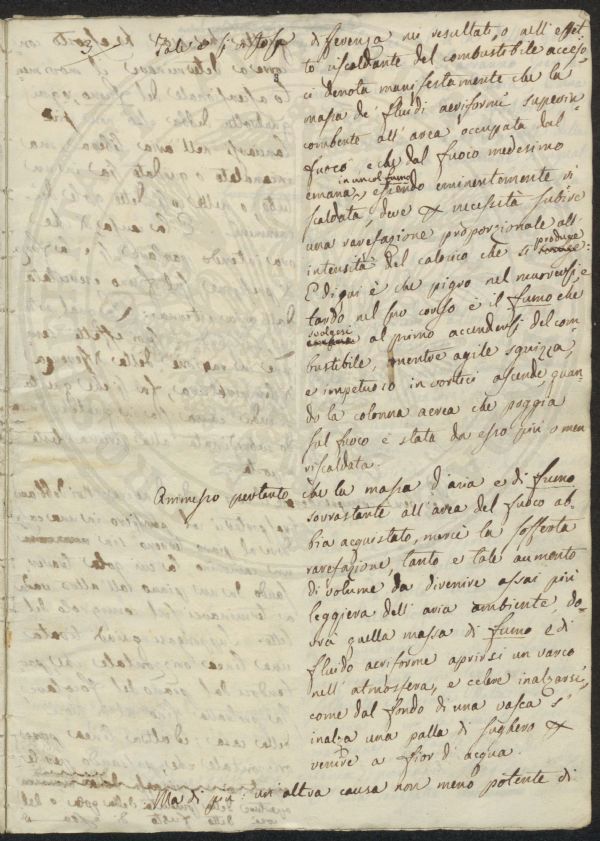 3. Tale e sì fatta differenza ne' resultati, o nell'effet-
to riscaldante del combustibile acceso
ci denota manifestamente che la
massa de' fluidi aeriformi superin
combente all'area occupata dal
fuoco e che dal fuoco medesimo
emana, in un col fumo essendo eminentemente ri
scaldata, deve di necessità subire
una rarefazione proporzionale all'
intensità del calorico che si produce:
E di qui è che pigro nel muoversi, e
tardo nel suo corso è il fumo che
svolgesi al primo accendersi del com
bustibile, mentre agile squizza,
e impetuoso in vortici ascende quan-
do la colonna aerea che poggia
sul fuoco è stata da esso più o men
riscaldata.
Ammesso pertanto, che la massa d'aria e di fumo
sovrastante all'area del fuoco ab-
bia acquistato, mercè la sofferta
rarefazione, tanto e tale aumento
di volume da divenire assai più
leggiera dell'aria ambiente, do-
vrà quella massa di fumo e di
fluido aeriforme aprirsi un varco
nell'atmosfera, e celere inalzarsi,
come dal fondo di una vasca s'
inalza una palla di sughero &
venire a fior d'acqua.
Ma di più: un'altra causa non meno potente di